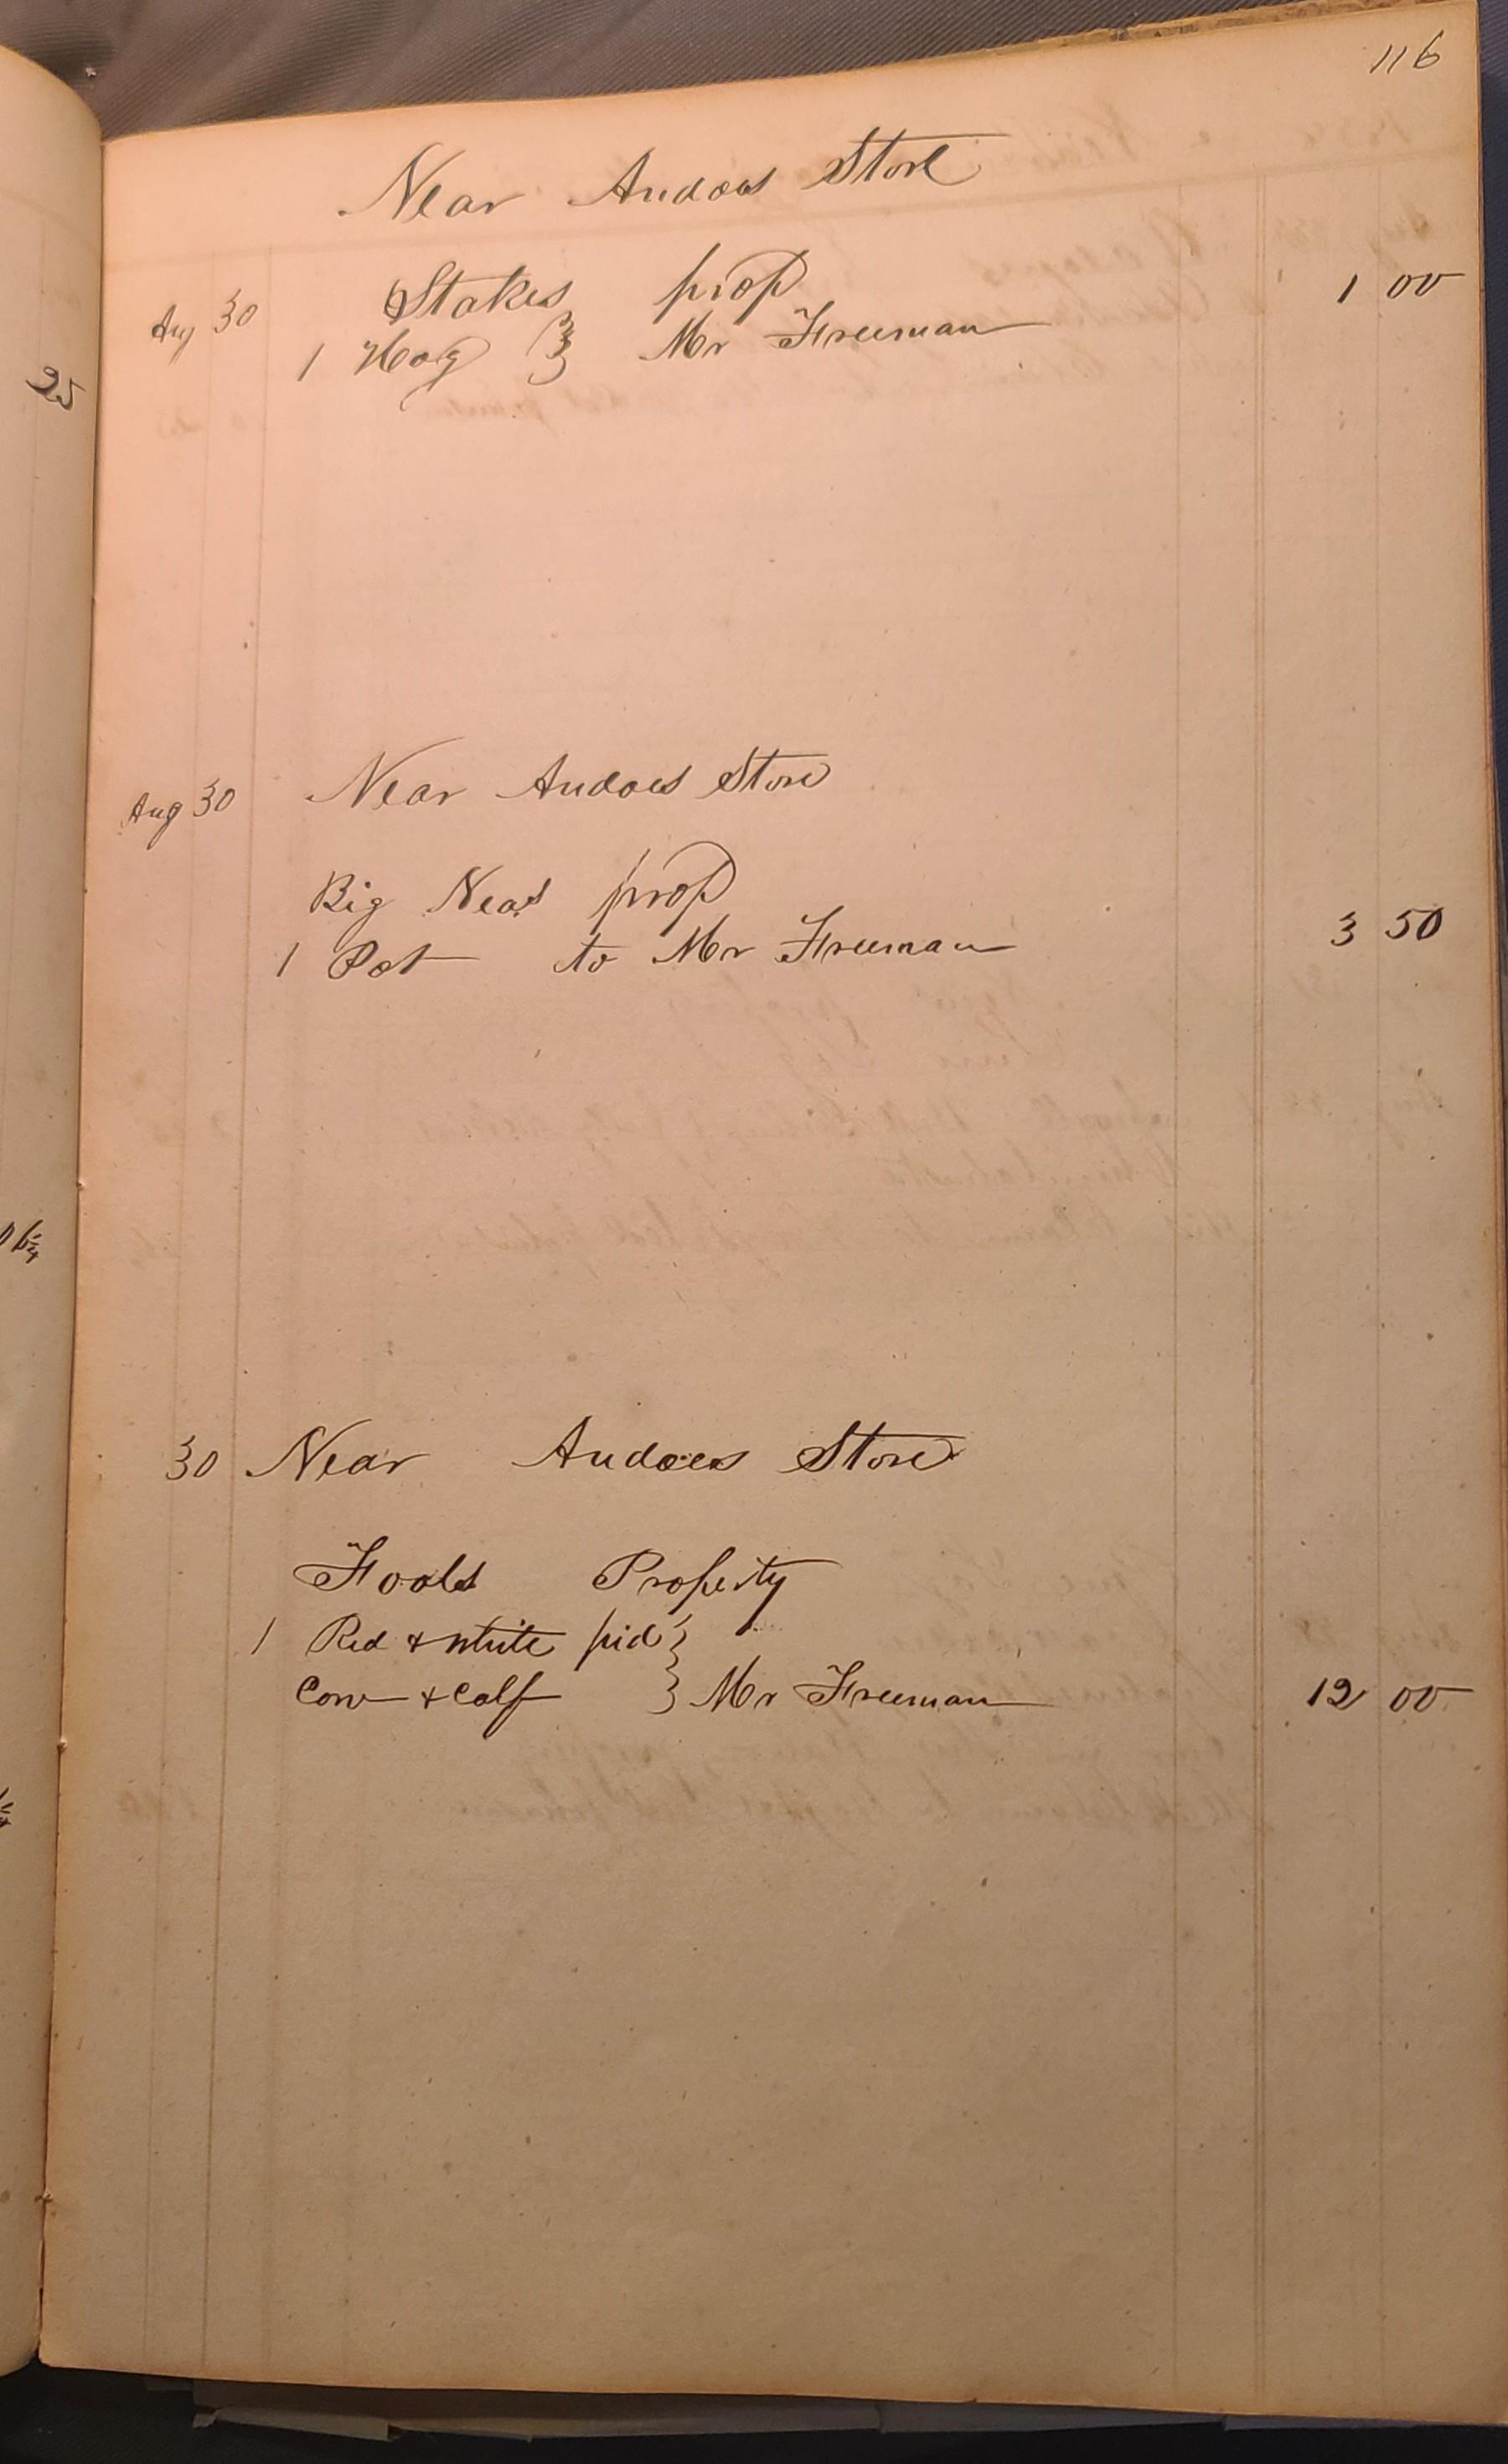 116
Near Andoes Store
Aug 30 Stakes prop 1 00
1 Hog Mr Freeman
25
Aug 30 Near Andoes Store
Big Neas prop
1 Pot to Mr Freeman 3 50
30 Near Andoes Store
Fools Property
1 Red & white pid
Cow & Calf Mr Freeman 12 00